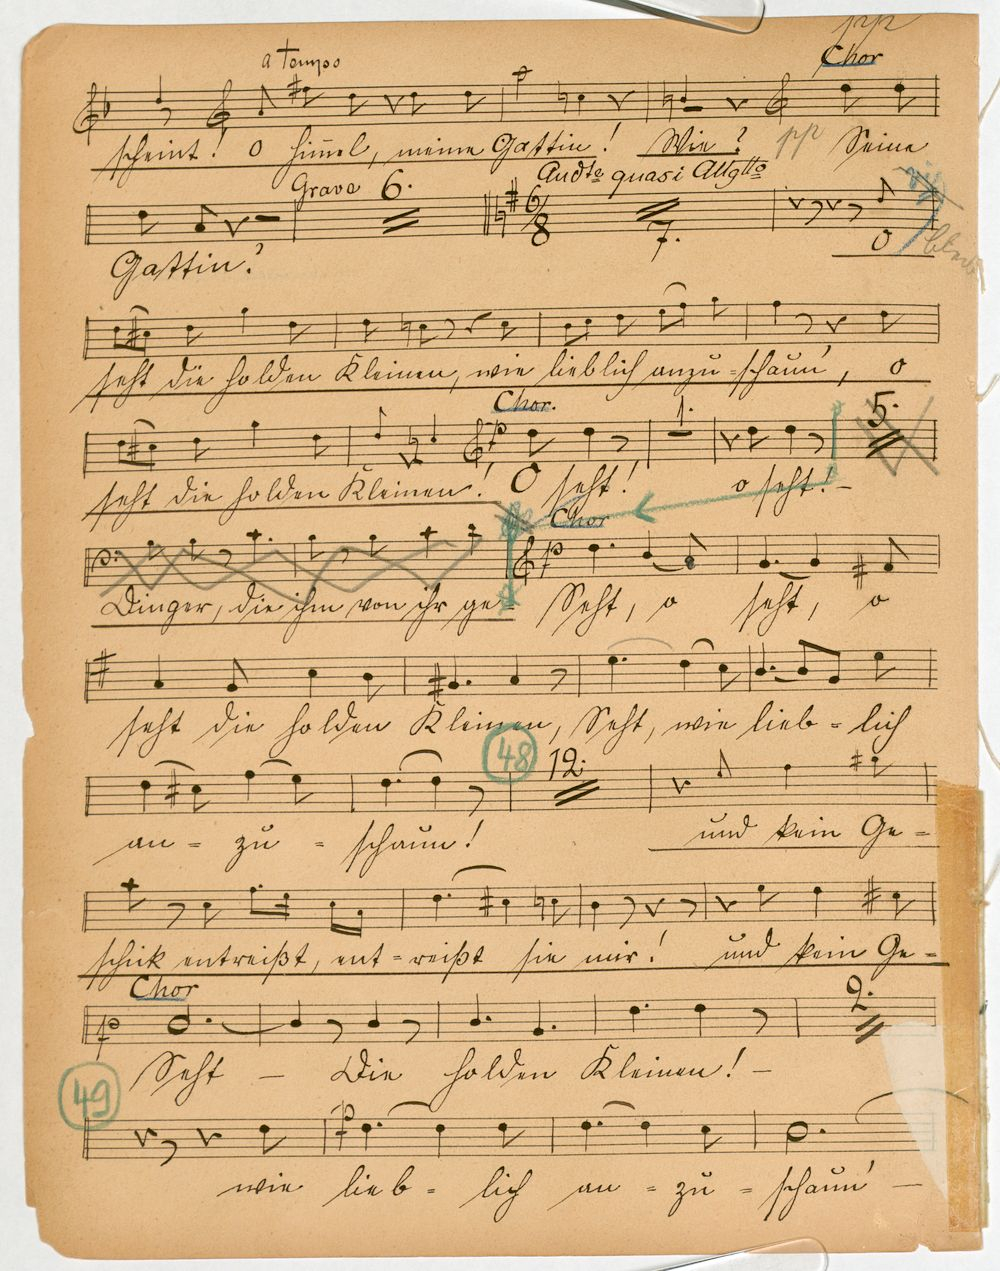 ppp
a Tempo Chor
pp
scheint! O Him̄el, meine Gattin! Wie? Seine
Grave 6. Andte quasi Allgtto
6/8 7.
Gattin? O
seht die holden Kleinen, wie lieblich anzu=schaun', o
Chor. 1. 5.
seht die holden Kleinen! O seht! o seht! –
Chor
Dinger, die ihm von ihr ge= Seht, o seht, o
seht die holden Kleinen, Seht, wie lieb=lich
48 12.
an= zu = schaun! und kein Ge=
schick entreißt, ent=reißt sie mir! und kein Ge=
Chor 2.
p
Seht – Die holden Kleinen! –
49
p
wie lieb= lich an = zu = schaun' –